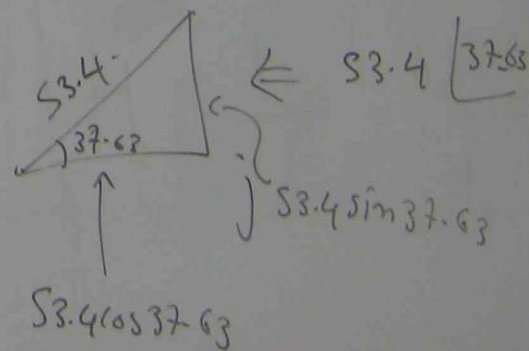 53.4
37.63
⇐ 53.4 ∠37.63
j 53.4 sin 37.63
53.4 cos 37.63